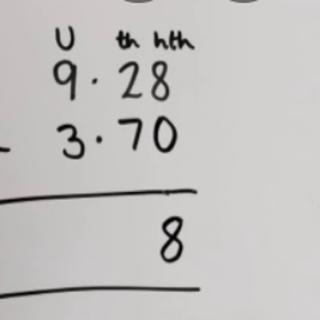 U th hth
9.28
- 3.70
8